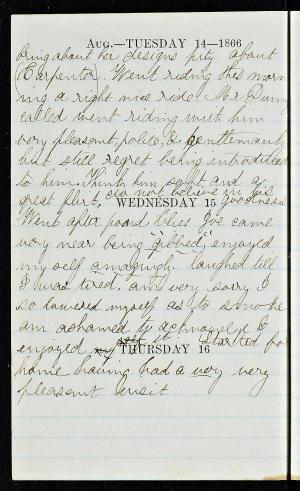 Aug.—TUESDAY 14—1866
bring about her designs pity about
Carpenter. Went riding this morn
ing a right nice ride Mr
called went riding with him
very pleasant, polite, & gentlemanly
but still regret being introduced
to him. Think him soft and a
great flirt, do not believe in his
goodness
WEDNESDAY 15
Went after pond lilies Joe came
very near being "gibbed", enjoyed
my self amazingly. laughed till
I was tired. am very sorry I
so lowered myself as to smoke
am ashamed to acknowledge I
enjoyed my self it. Started for
THURSDAY 16
home having had a very very
pleasant visit